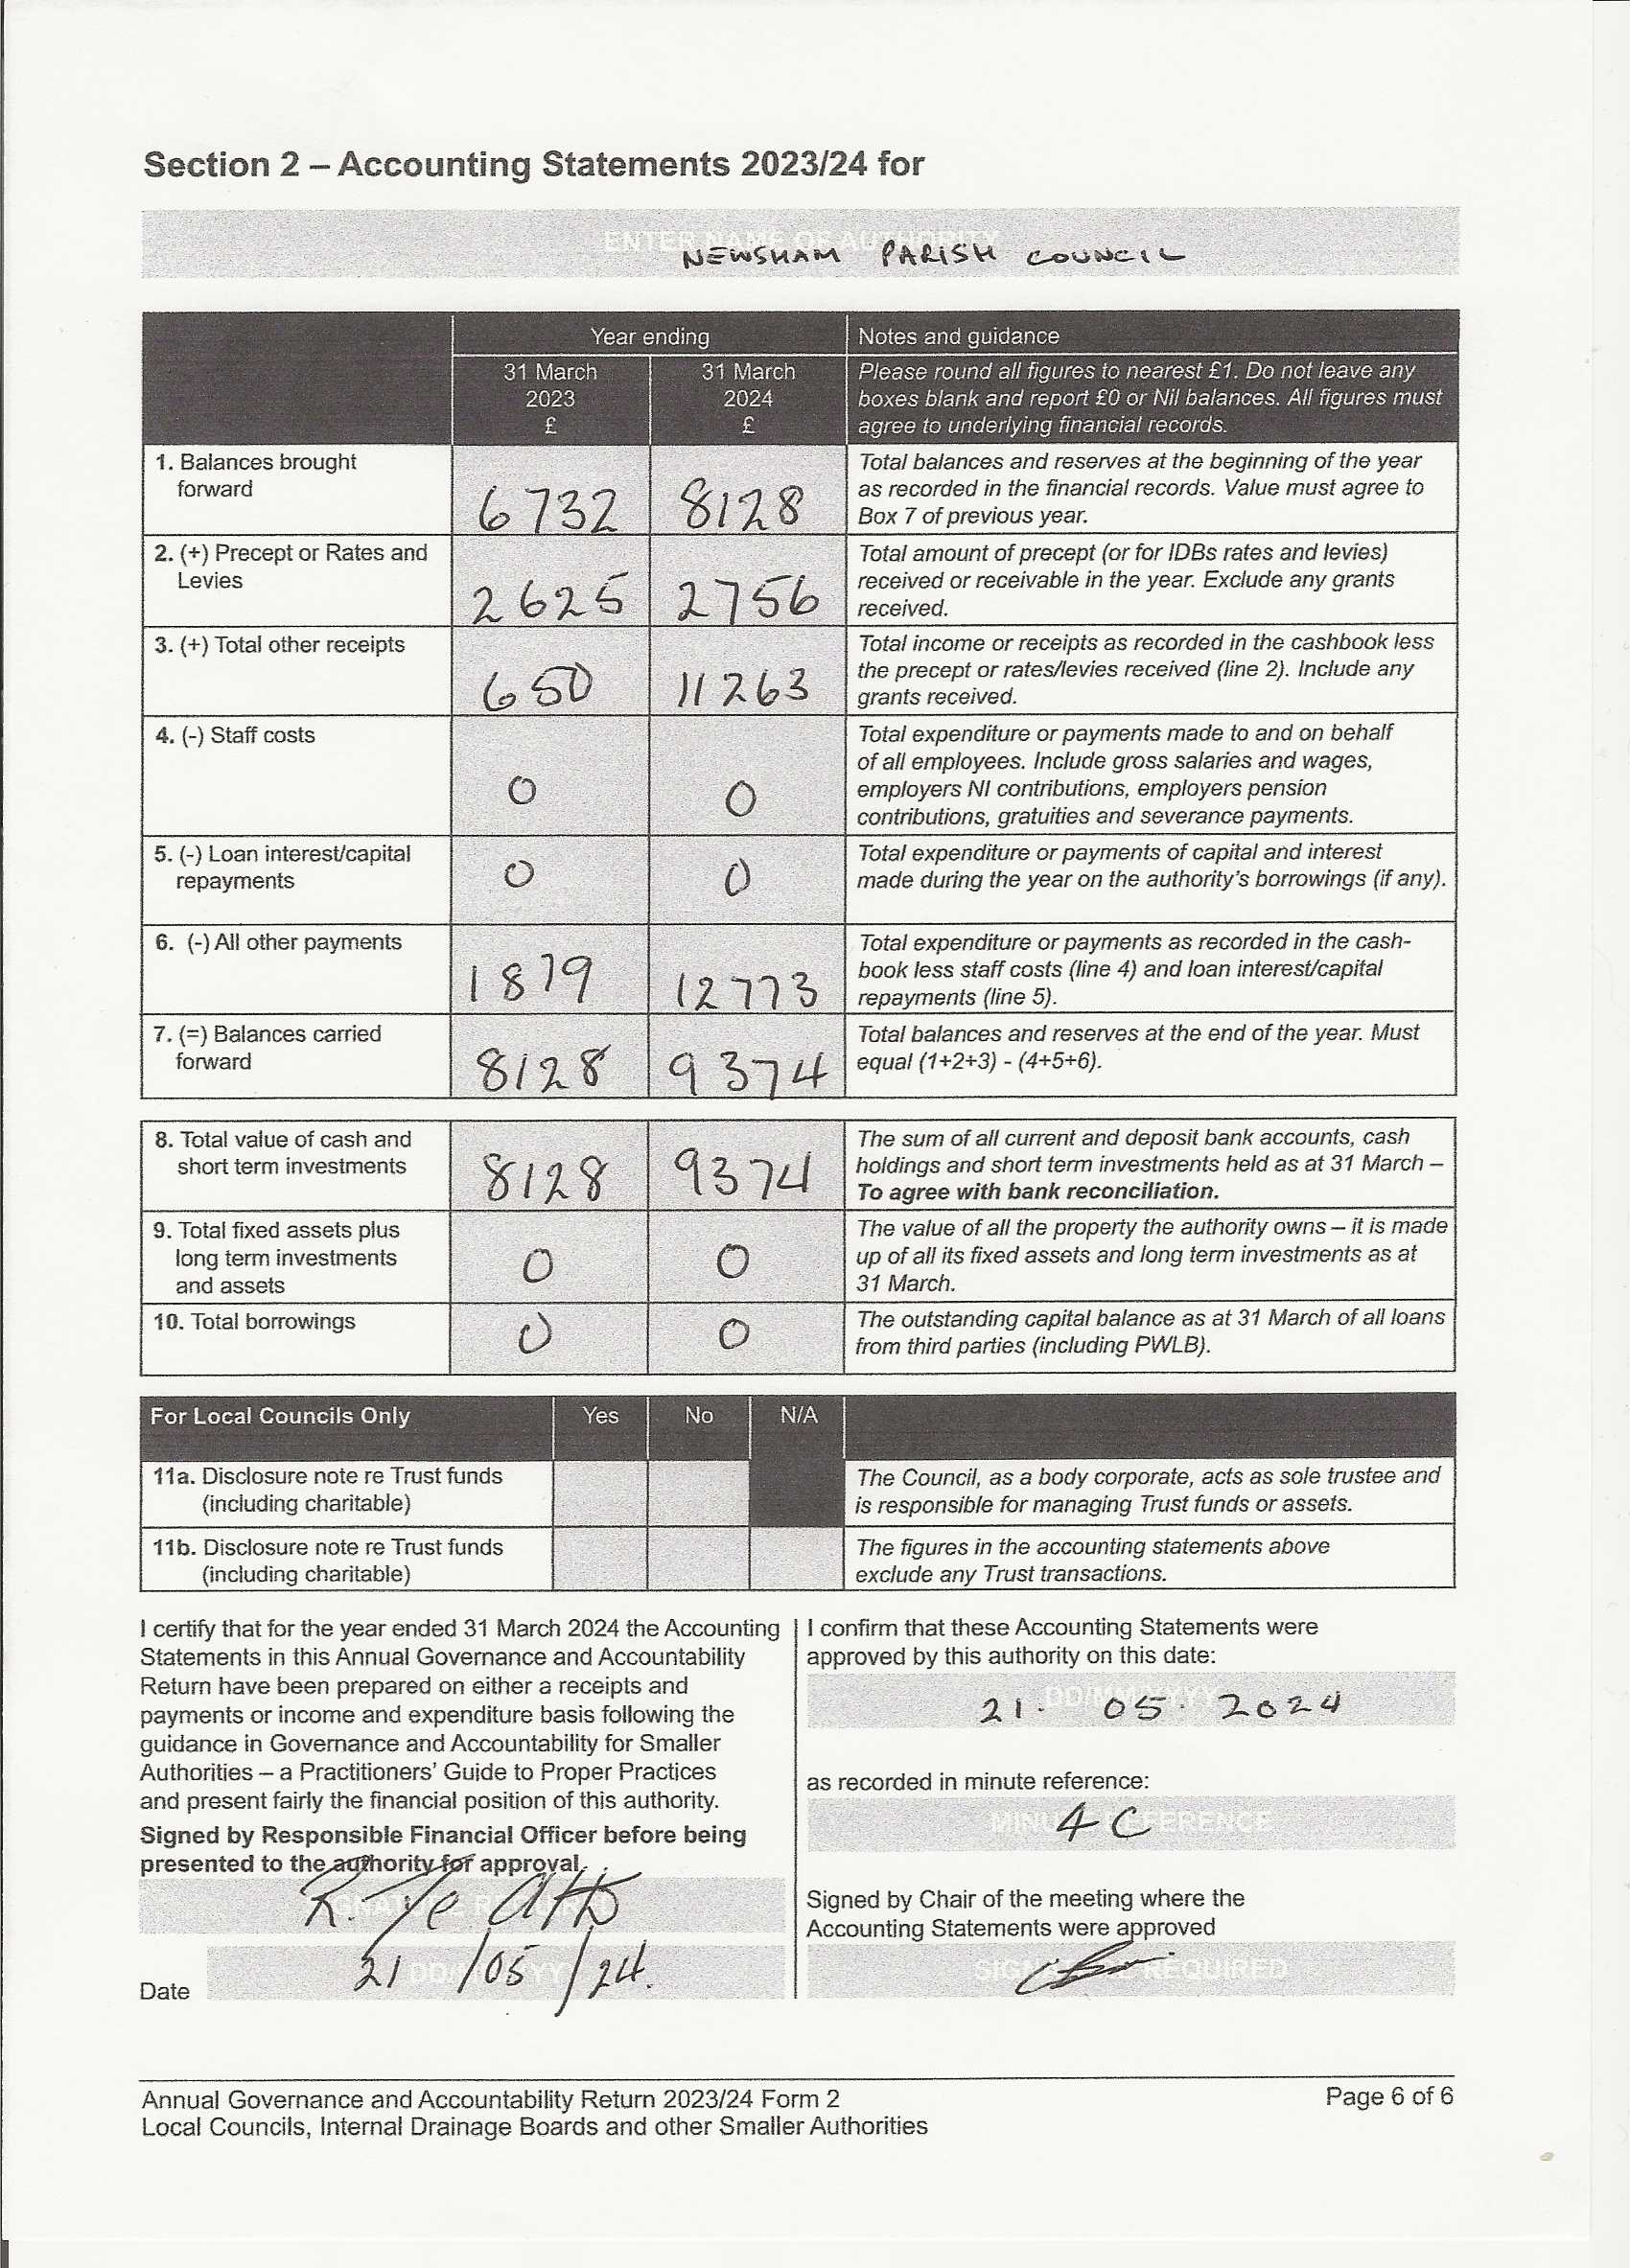 Section 2 – Accounting Statements 2023/24 for
ENTER NAME OF AUTHORITY
NEWSHAM PARISH COUNCIL
Year ending
Notes and guidance
31 March
2023
£
31 March
2024
£
Please round all figures to nearest £1. Do not leave any
boxes blank and report £0 or Nil balances. All figures must
agree to underlying financial records.
1. Balances brought
forward
6732
8128
Total balances and reserves at the beginning of the year
as recorded in the financial records. Value must agree to
Box 7 of previous year.
2. (+) Precept or Rates and
Levies
2625
2756
Total amount of precept (or for IDBs rates and levies)
received or receivable in the year. Exclude any grants
received.
3. (+) Total other receipts
650
11263
Total income or receipts as recorded in the cashbook less
the precept or rates/levies received (line 2). Include any
grants received.
4. (-) Staff costs
0
0
Total expenditure or payments made to and on behalf
of all employees. Include gross salaries and wages,
employers NI contributions, employers pension
contributions, gratuities and severance payments.
5. (-) Loan interest/capital
repayments
0
0
Total expenditure or payments of capital and interest
made during the year on the authority's borrowings (if any).
6. (-) All other payments
1879
12773
Total expenditure or payments as recorded in the cash-
book less staff costs (line 4) and loan interest/capital
repayments (line 5).
7. (=) Balances carried
forward
8128
9374
Total balances and reserves at the end of the year. Must
equal (1+2+3) - (4+5+6).
8. Total value of cash and
short term investments
8128
9374
The sum of all current and deposit bank accounts, cash
holdings and short term investments held as at 31 March –
To agree with bank reconciliation.
9. Total fixed assets plus
long term investments
and assets
0
0
The value of all the property the authority owns – it is made
up of all its fixed assets and long term investments as at
31 March.
10. Total borrowings
0
0
The outstanding capital balance as at 31 March of all loans
from third parties (including PWLB).
For Local Councils Only
Yes
No
N/A
11a. Disclosure note re Trust funds
(including charitable)
The Council, as a body corporate, acts as sole trustee and
is responsible for managing Trust funds or assets.
11b. Disclosure note re Trust funds
(including charitable)
The figures in the accounting statements above
exclude any Trust transactions.
I certify that for the year ended 31 March 2024 the Accounting
Statements in this Annual Governance and Accountability
Return have been prepared on either a receipts and
payments or income and expenditure basis following the
guidance in Governance and Accountability for Smaller
Authorities – a Practitioners' Guide to Proper Practices
and present fairly the financial position of this authority.
Signed by Responsible Financial Officer before being
presented to the authority for approval
Date
21/05/24.
I confirm that these Accounting Statements were
approved by this authority on this date:
DD/MM/YYYY
21. 05. 2024
as recorded in minute reference:
MINUTE REFERENCE
4 C
Signed by Chair of the meeting where the
Accounting Statements were approved
SIGNATURE REQUIRED
Annual Governance and Accountability Return 2023/24 Form 2
Local Councils, Internal Drainage Boards and other Smaller Authorities
Page 6 of 6